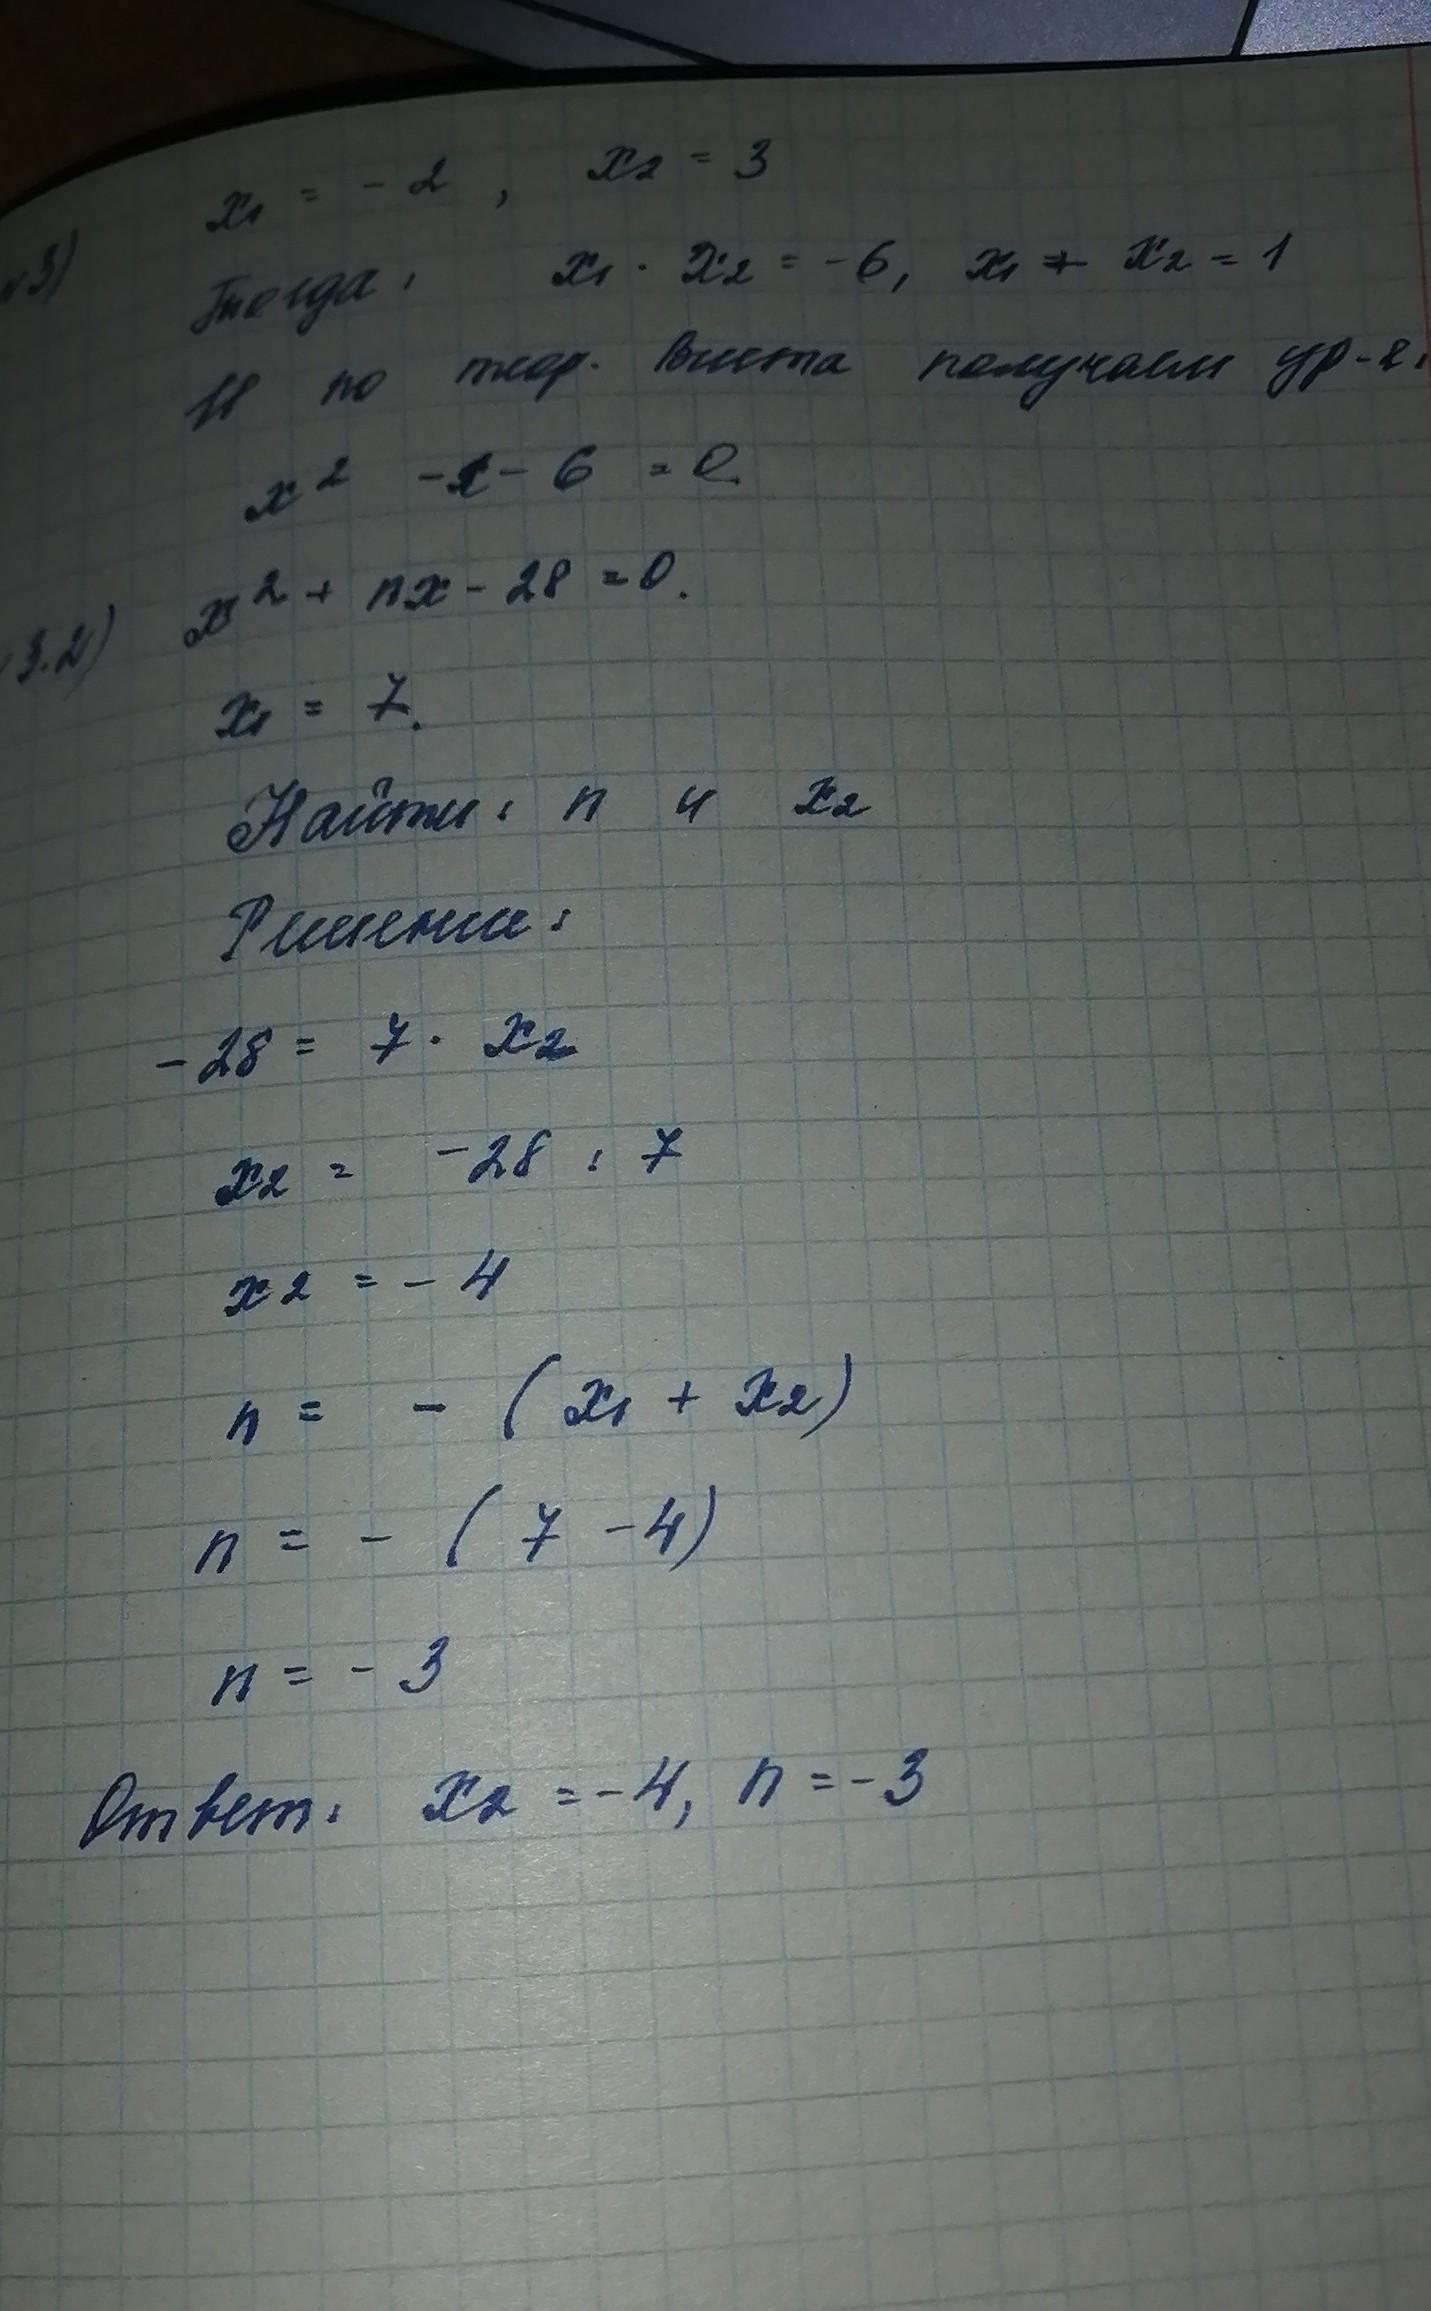 №3) x₁ = -2, x₂ = 3
Тогда: x₁ · x₂ = -6, x₁ + x₂ = 1
И по теор. Виета получаем ур-е:
x² - x - 6 = 0.
3.2) x² + nx - 28 = 0.
x₁ = 7.
Найти: n и x₂
Решение:
-28 = 7 · x₂
x₂ = -28 : 7
x₂ = -4
n = - (x₁ + x₂)
n = - (7 - 4)
n = -3
Ответ: x₂ = -4, n = -3